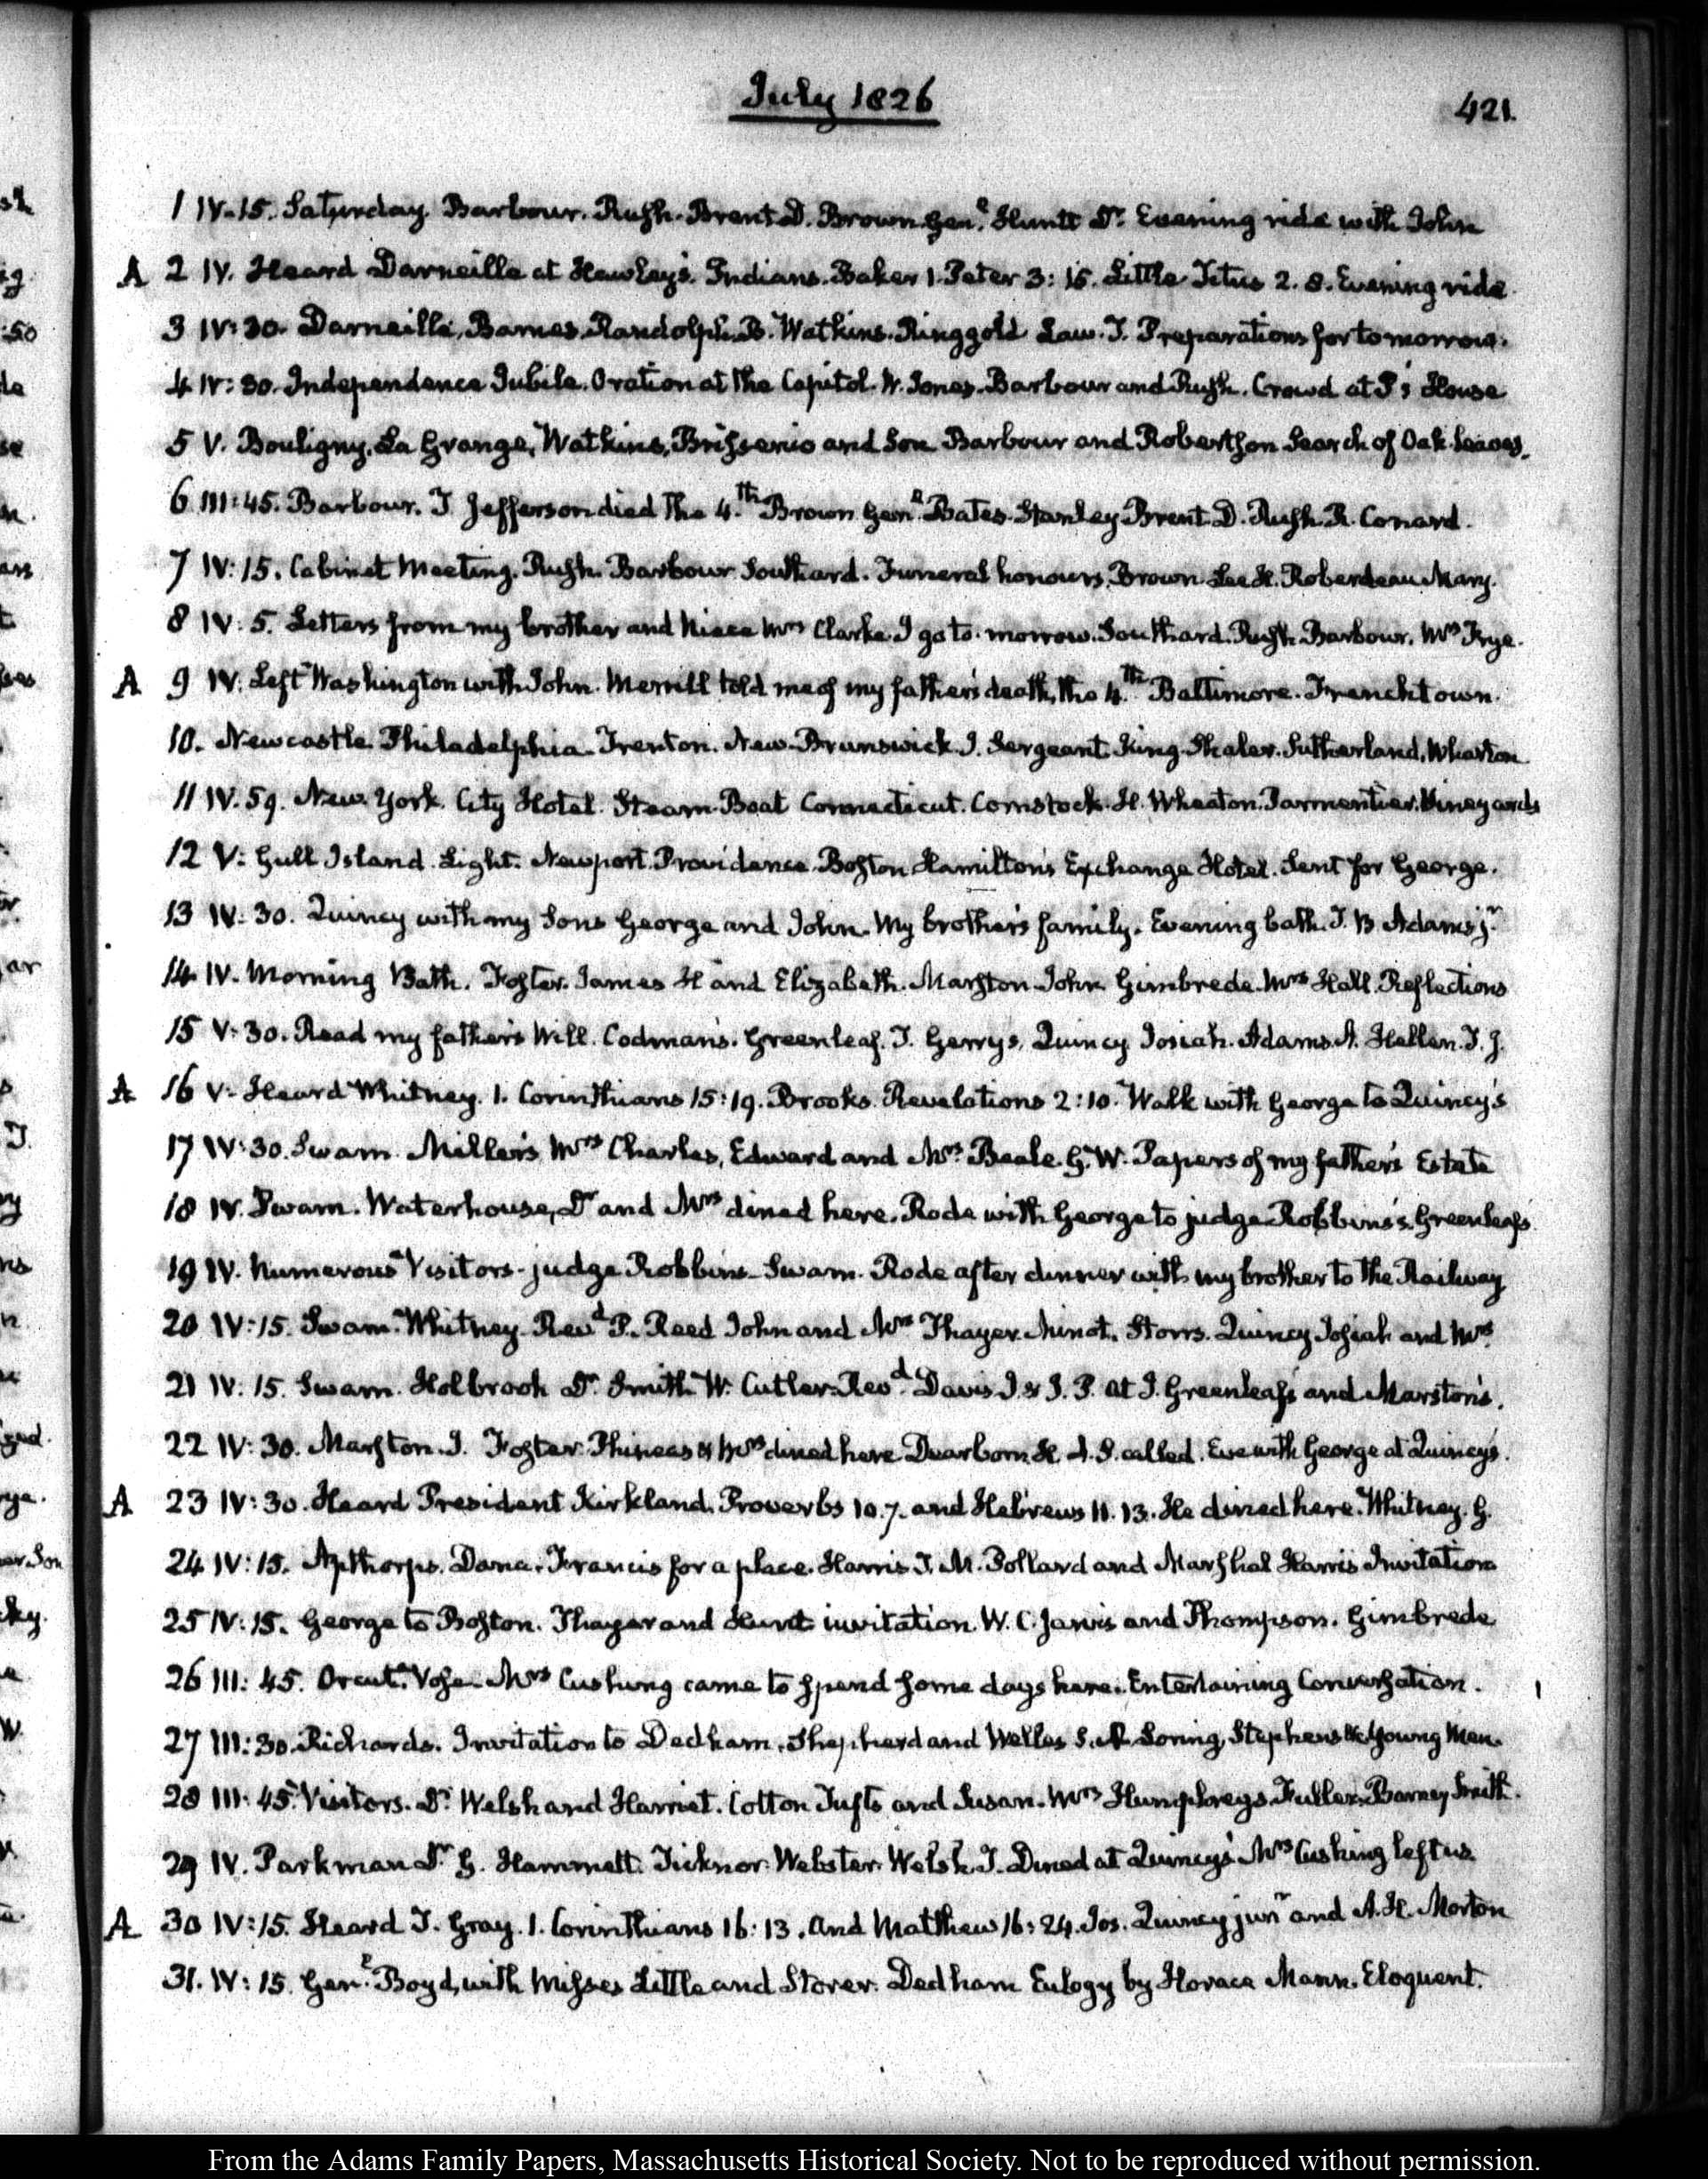 July 1826
421.
1 IV-15. Saturday. Barbour. Rush. Brent D. Brown Gen.l Huntt Dr. Evening ride with John
A 2 IV. Heard Darneille at Hawley's. Indians. Baker 1. Peter 3: 15. Little Titus 2. 8. Evening ride.
3 IV:30. Darneille, Barnes. Randolph. B. Watkins. Ringgold Law. T. Preparations for tomorrow.
4 IV:30. Independence Jubile. Oration at the Capitol. W. Jones. Barbour and Rush. Crowd at P's House
5 V. Bouligny. La Grange, Watkins, Brissenio and Son Barbour and Robertson Search of Oak leaves.
6 III:45. Barbour. T. Jefferson died the 4.th Brown Gen.l Bates. Stanley Brent D. Rush R. Conard.
7 IV:15. Cabinet Meeting. Rush. Barbour Southard. Funeral honours, Brown. Lee H. Roberdeau Mary.
8 IV. 5. Letters from my brother and Niece Mrs Clarke. I go to-morrow. Southard. Rush. Barbour. Mrs Frye.
A 9 IV. Left Washington with John. Merrill told me of my father's death, the 4.th Baltimore. Frenchtown.
10. Newcastle. Philadelphia. Trenton. New-Brunswick. J. Sergeant. King. Shaler. Sutherland. Wharton
11 IV. 59. New York. City Hotel. Steam-Boat Connecticut. Comstock. H. Wheaton. Parmentier. Vineyards
12 V. Gull Island. Light. Newport. Providence. Boston Hamilton's Exchange Hotel. Sent for George.
13 IV. 30. Quincy with my Sons George and John. My brother's family. Evening bath. T. B Adams jr
14 IV. Morning Bath. Foster. James H and Elizabeth. Marston John. Gimbrede. Mrs Hall. Reflections
15 V. 30. Read my father's Will. Codman's. Greenleaf. T. Gerrys, Quincy Josiah. Adams A. Hellen. T. J.
A 16 V. Heard Whitney. 1. Corinthians 15:19. Brooks. Revelations 2:10. Walk with George to Quincy's
17 IV:30. Swam. Miller's, Mrs Charles, Edward and Mrs. Beale. G. W. Papers of my father's Estate
18 IV. Swam. Waterhouse, Dr and Mrs dined here. Rode with George to judge Robbins's. Greenleafs.
19 IV. Numerous Visitors. judge Robbins. Swam. Rode after dinner with my brother to the Railway
20 IV:15. Swam. Whitney. Revd P. Reed John and Mrs Thayer. Minot. Storrs. Quincy Josiah and Mrs
21 IV. 15. Swam. Holbrook Dr. Smith. W. Cutler. Revd. Davis J. & J. P. at J. Greenleaf's and Marston's.
22 IV:30. Marston. J. Foster. Phineas & Mrs dined here. Dearborn. H. A. S. called. Eve with George at Quincy's.
A 23 IV:30. Heard President Kirkland. Proverbs 10. 7. and Hebrews 11. 13. He dined here. Whitney. G.
24 IV:15. Apthorps. Dana. Francis for a place. Harris T. M. Pollard and Marshal Harris Invitation
25 IV:15. George to Boston. Thayer and Hunt invitation. W. C. Jarvis and Thompson. Gimbrede
26 III:45. Orcutt. Vose. Mrs Cushing came to spend some days here. Entertaining Conversation.
27 III:30. Richards. Invitation to Dedham. Shepherd and Welles S. A. Loring, Stephens &c Young Men.
28 III:45. Visitors. Dr. Welsh and Harriet. Cotton Tufts and Susan. Mrs Humphreys. Fuller. Barney Smith.
29 IV. Parkman Dr G. Hammett. Ticknor. Webster. Welsh. T. Dined at Quincy's Mrs Cushing left us.
A 30 IV:15. Heard T. Gray. 1. Corinthians 16:13. and Matthew 16:24. Jos. Quincy junr and A. H. Morton
31. IV:15. Gen.l Boyd, with Misses Little and Storer. Dedham Eulogy by Horace Mann. Eloquent.
From the Adams Family Papers, Massachusetts Historical Society. Not to be reproduced without permission.